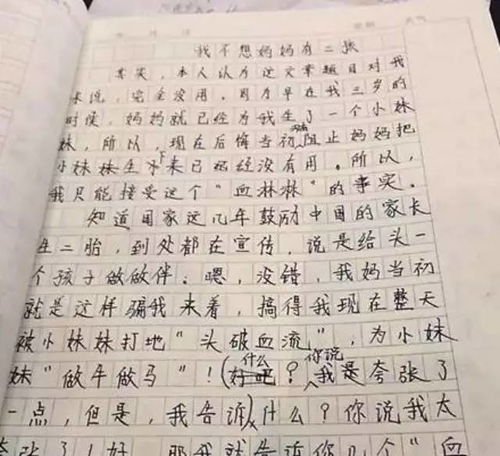 我不想妈妈有二胎
其实，本人认为这文章题目对我
来说，完全没用。因为早在我三岁的
时候，妈妈就已经为我生了一个小妹
妹，所以，现在后悔当初阻止妈妈把
小妹妹生下来已经没有用。所以，
我只能接受这个“血淋淋”的事实。
知道国家这几年鼓励中国的家长
生二胎，到处都在宣传，说是给头一
个孩子做做伴。嗯，没错，我妈当初
就是这样骗我来着，搞得我现在整天
被小妹妹打地“头破血流”，为小妹
妹“做牛做马”！（什么？你说我是夸张了
一点，但是，我告诉）什么？你说我太
夸张了！好，那我就告诉你几个“血